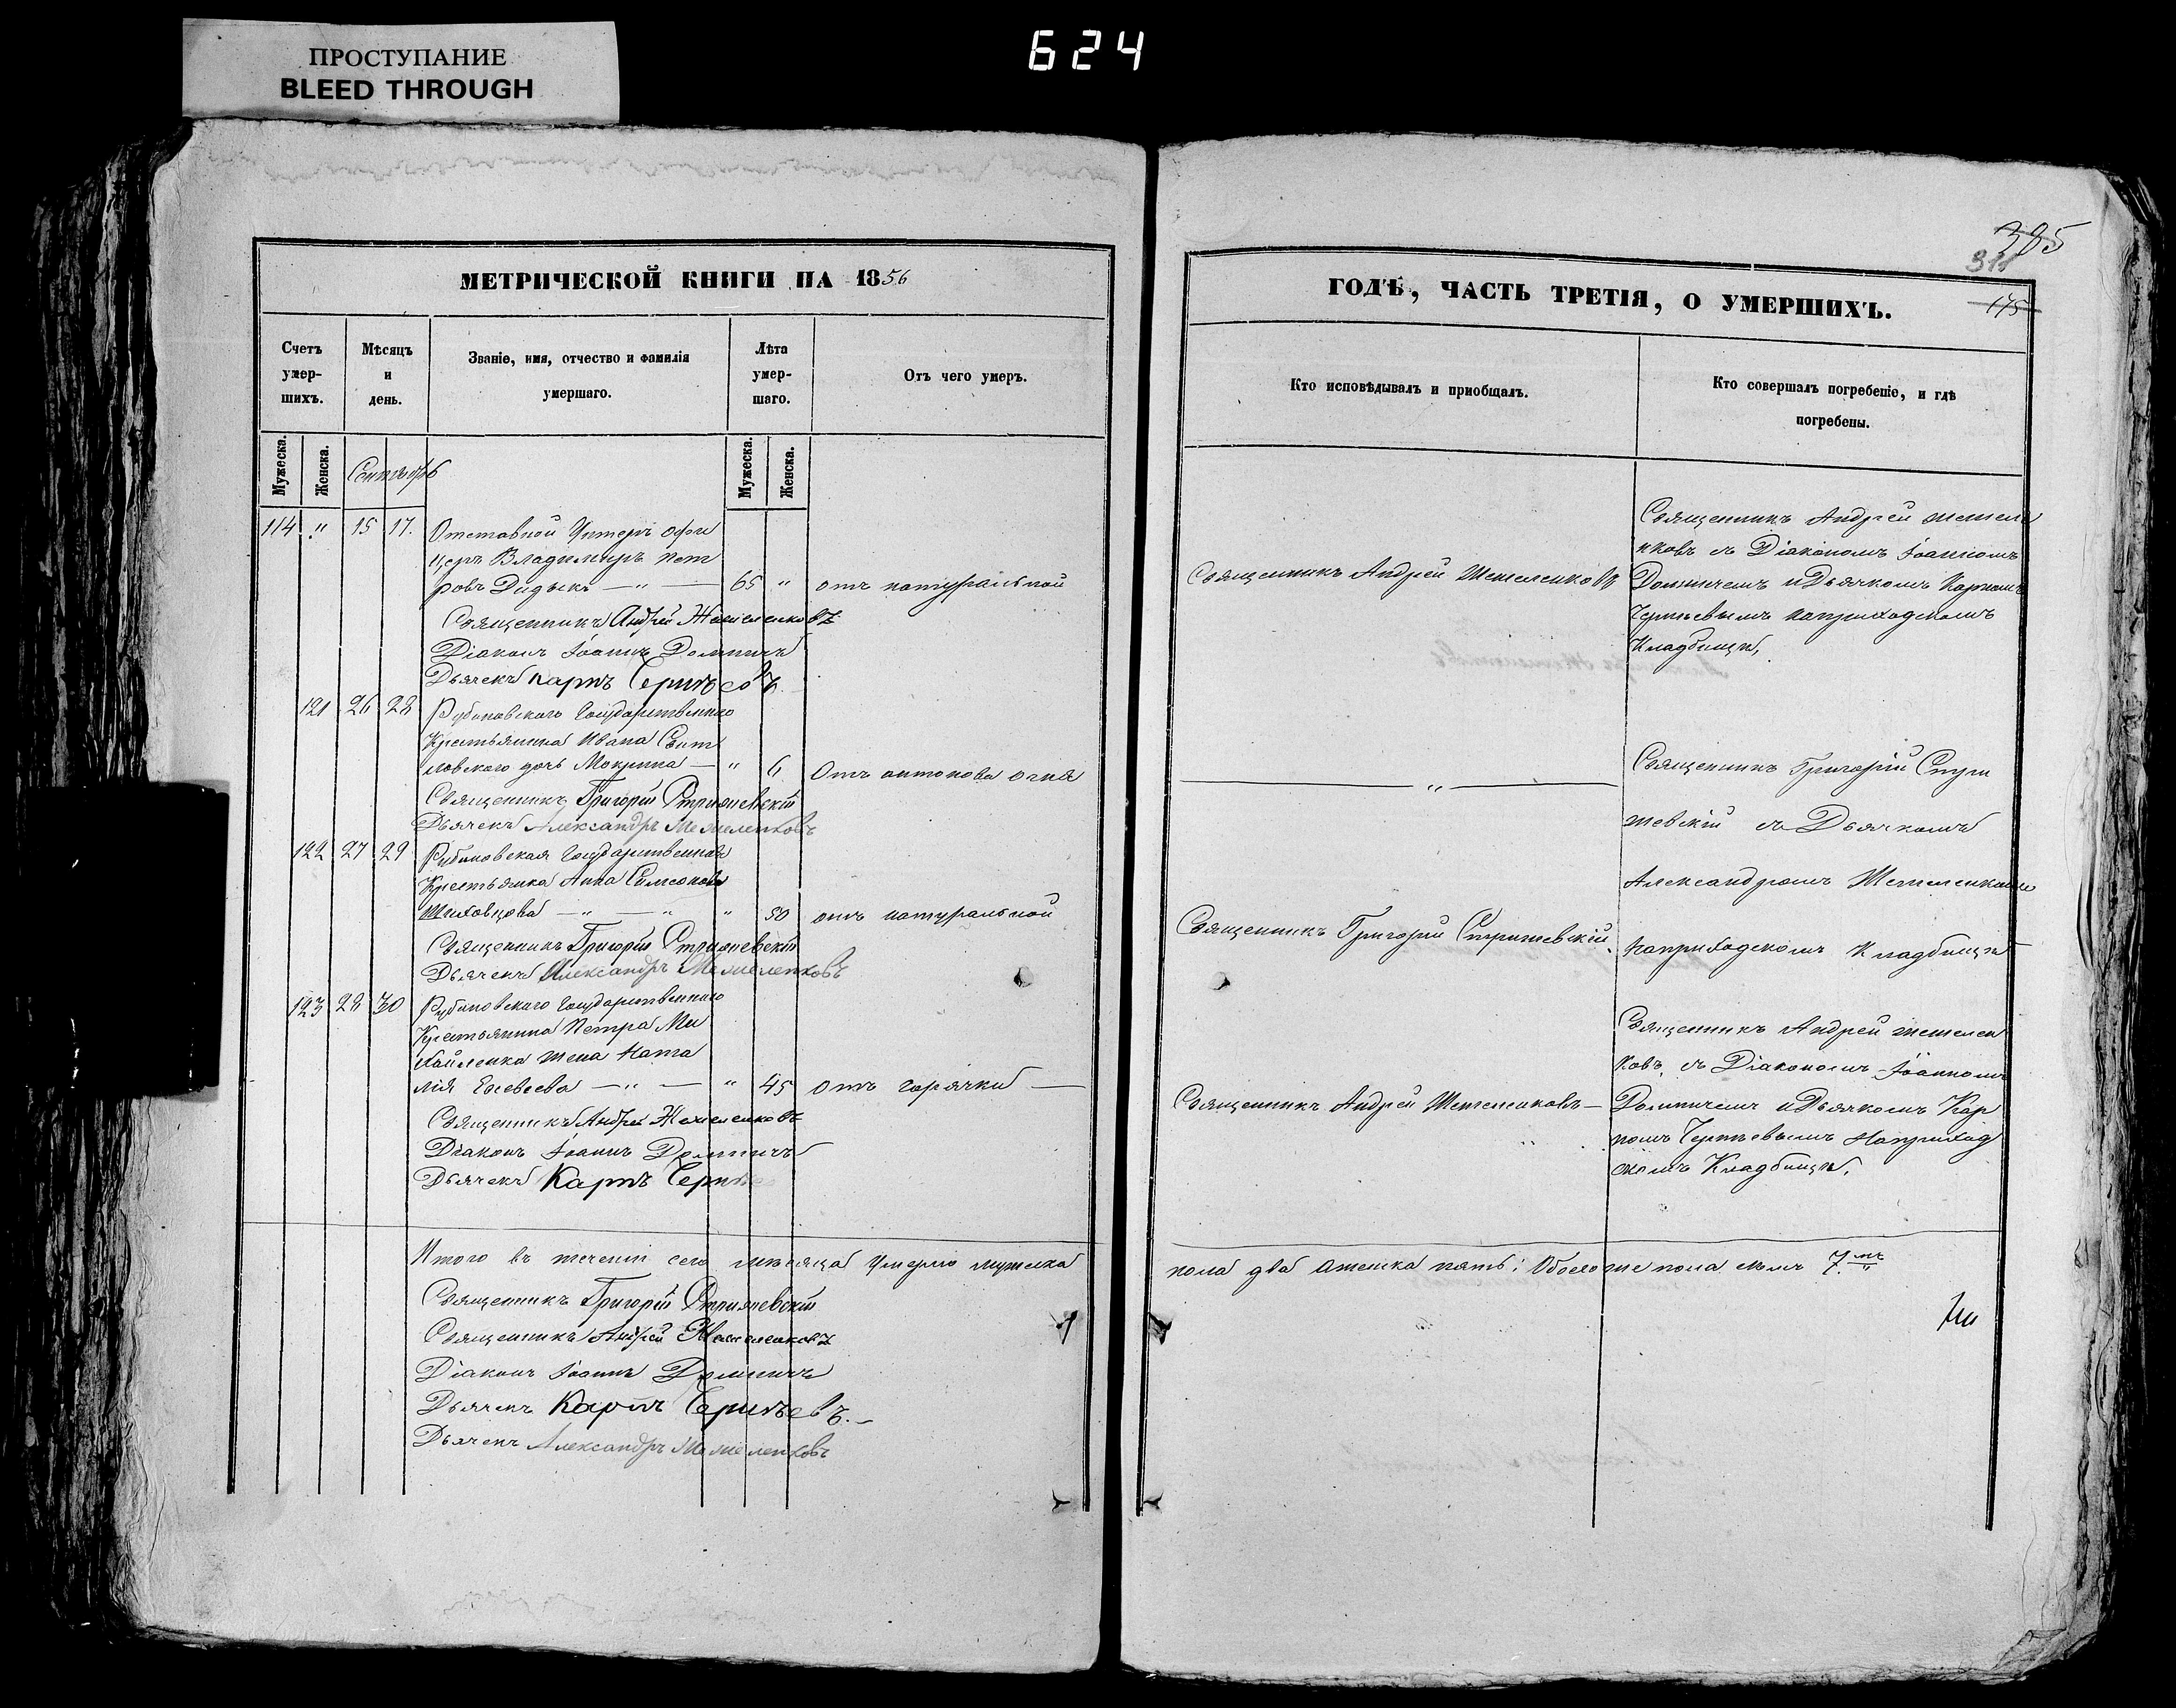 ПРОСТУПАНИЕ
BLEED THROUGH
624
МЕТРИЧЕСКОЙ КНИГИ НА 1856
Счетъ умер- шихъ.
Мѣсяцъ и день.
Званіе, имя, отчество и фамилія умершаго.
Лѣта умер- шаго.
Отъ чего умеръ.
Мужеска.
Женска.
Мужеска.
Женска.
Сентябрь
114 " 15 17. Отставной Унтеръ офи
церъ Владимиръ Пет
ровъ Дидыкъ — " — 65 " отъ натуральной
Священникъ Андрей Жежеленковъ
Діаконъ Іоаннъ Доминичъ
Дьячекъ Карпъ
121 26 28 Рубановскаго Государственнаго
Крестьянина Ивана Свит
ловскаго дочь Мокрина — " 6 Отъ антонова огня
Священникъ Григорій Стрижевскій
Дьячекъ Александръ Жежеленковъ
122 27 29 Рубановская Государственная
Крестьянка Анна Симеонова
" 50 отъ натуральной
Священникъ Григорій Стрижевскій
Дьячекъ Александръ Жежеленковъ
123 28 30 Рубановскаго Государственнаго
Крестьянина Петра Ми
хайленка жена Ната
лія Евсеева — " — " 45 отъ горячки —
Священникъ Андрей Жежеленковъ
Діаконъ Іоаннъ Доминичъ
Дьячекъ Карпъ
Итого въ теченіи сего мѣсяца Умерло мужеска
Священникъ Григорій Стрижевскій
Священникъ Андрей Жежеленковъ
Діаконъ Іоаннъ Доминичъ
Дьячекъ Карпъ
Дьячекъ Александръ Жежеленковъ
385
311
175
ГОДЪ, ЧАСТЬ ТРЕТІЯ, О УМЕРШИХЪ.
Кто исповѣдывалъ и пріобщалъ.
Кто совершалъ погребеніе, и гдѣ погребены.
Священникъ Андрей Жежеленковъ
Священникъ Андрей Жежеле
нковъ съ Діакономъ Іоанномъ
Доминичемъ и Дьячкомъ Карпомъ
на приходскомъ
Кладбищѣ,
— " —
Священникъ Григорій Стри
жевскій съ Дьячкомъ
Александромъ Жежеленковымъ
на приходскомъ Кладбищѣ
Священникъ Григорій Стрижевскій
Священникъ Андрей Жежелен
ковъ, съ Діакономъ Іоанномъ
Священникъ Андрей Жежеленковъ —
Доминичемъ и Дьячкомъ Кар
помъ на приход
скомъ Кладбищѣ,
пола два а женска пять; Обоего же пола семь 7.мь